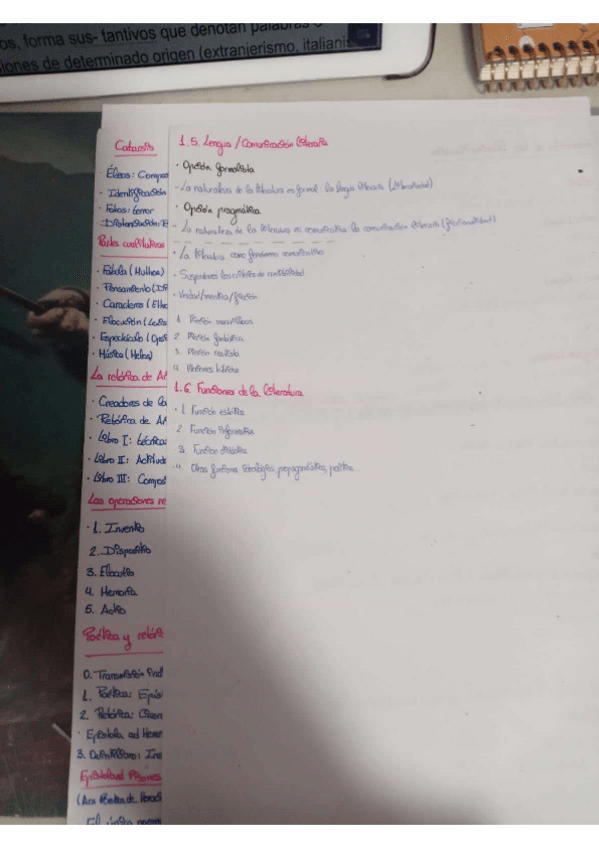 os, forma sus- tantivos que denotan palabras o
iones de determinado origen (extranjerismo, italianis
Catarsis
· Éleos: Compa
· Identificación
· Fobos: terror
Partes cualitativas
· Fábula (Mythos)
· Pensamiento (
· Caracteres (Etho
· Elocución (Lexis
· Espectáculo (Opsi
· Música (Melos)
La retórica de Ar
· Creadores de la
· Retórica de Ar
· Libro I: técnicas
· Libro II: Actitude
· Libro III: Compos
Las operaciones re
· 1. Inventio
2. Dispositio
3. Elocutio
4. Memoria
5. Actio
Poética y retóri
0. Transmisión
1. Poética: Epís
2. Retórica: Cicer
· Epístola ad Heren
3. Quintiliano: Ins
Epístola ad Pisones
(Ars Poetica de Horaci
1.5. Lengua / Comunicación literaria
· Opción formalista
- La naturaleza de la literatura es formal: la lengua literaria (literariedad)
· Opción pragmática
- La naturaleza de la literatura es comunicativa: la comunicación literaria (ficcionalidad)
· La literatura como fenómeno comunicativo
- Suspendemos los criterios de credibilidad
- Verdad/mentira/ficción
1. Ficción maravillosa
2. Ficción fantástica
3. Ficción realista
4.
1.6. Funciones de la literatura
· 1. Función estética
2. Función informativa
3. Función didáctica
· 4. Otras funciones: ideológica, propagandística, política...